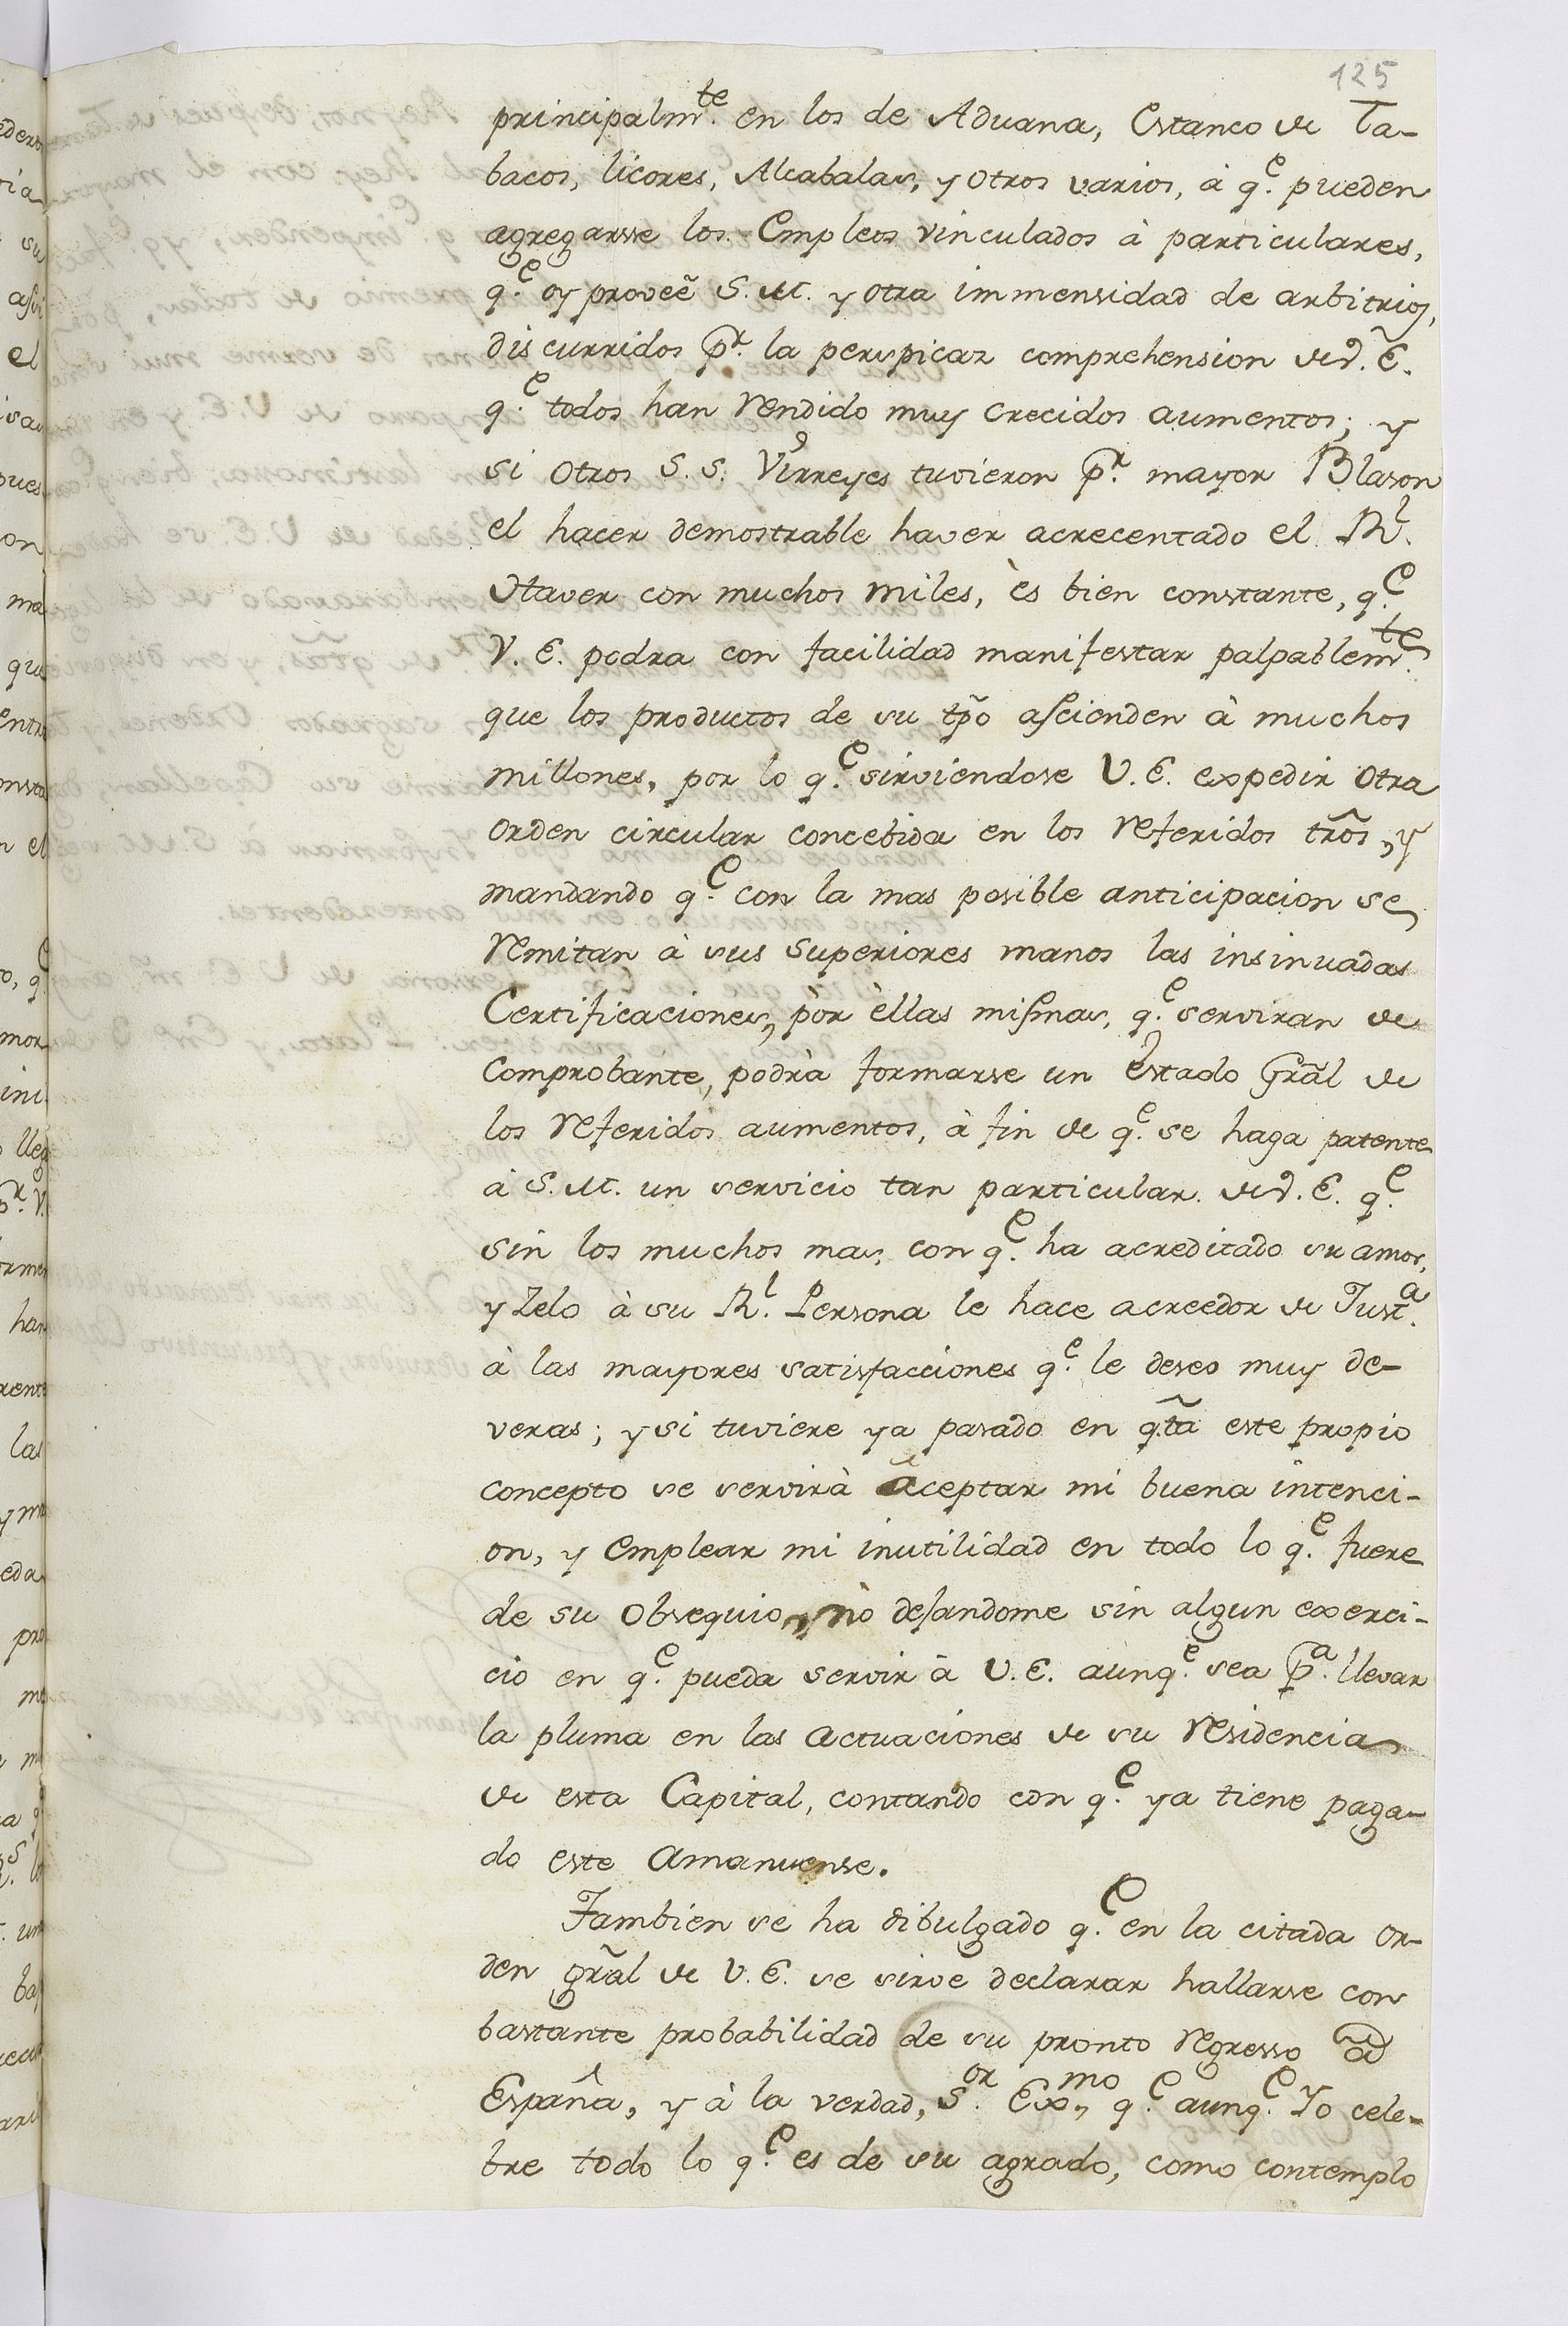 125
principalmte. en los de Aduana, Estanco de Ta-
bacos, licores, Alcabalas, y otros varios, à qe. pueden
agregarsse los Empleos vinculados à particulares,
qe. oy proveẽ S. M. y otra immensidad de arbitrios,
discurridos pr. la perspicaz comprehension de V. E.
qe. todos han rendido muy crecidos aumentos; y
si otros S. S. Virreyes tuvieron pr. mayor Blason
el hacer demostrable haver acrecentado el Rl.
Haver con muchos miles, ès bien constante, qe.
V. E. podra con facilidad manifestar palpablemte.
que los productos de su tpõ ascienden à muchos
millones, por lo qe. sirviendose V. E. expedir otra
orden circular concebida en los referidos trõs, y
mandando qe. con la mas posible anticipacion se
remitan à sus superiores manos las insinuadas
Certificaciones, pòr èllas mismas, qe. serviran de
comprobante, podrà formarse un Estado Grãl de
los referidos aumentos, à fin de qe. se haga patente
à S. M. un servicio tan particular de V. E. qe.
sin los muchos mas, con qe. ha acreditado su amor,
y Zelo à su Rl. Persona le hace acreedor de Justa.
à las mayores satisfacciones qe. le deseo muy de-
veras; y si tuviere ya pasado en qtã este propio
concepto se servirà àceptar mi buena intenci-
on, y emplear mi inutilidad en todo lo qe. fuere
de su obsequio, nò dejandome sin algun exerci-
cio en qe. pueda servir à V. E. aunqe. sea pa. llevar
la pluma en las actuaciones de su residencia
de esta Capital, contando con qe. ya tiene paga-
do este Amanuense.
Tambien se ha dibulgado qe. en la citada or-
den grãl de V. E. se sirve declarar hallarse con
bastante probabilidad de su pronto regresso à
España, y à la verdad, Sor. Exmo, qe. aunqe. Yo cele-
bre todo lo qe. es de su agrado, como contemplo